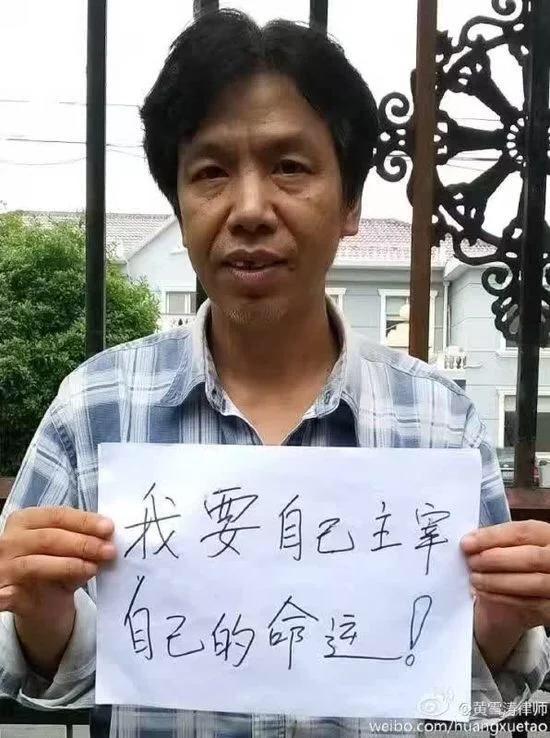 我要自己主宰
自己的命运!
@黄雪涛律师
weibo.com/huangxuetao